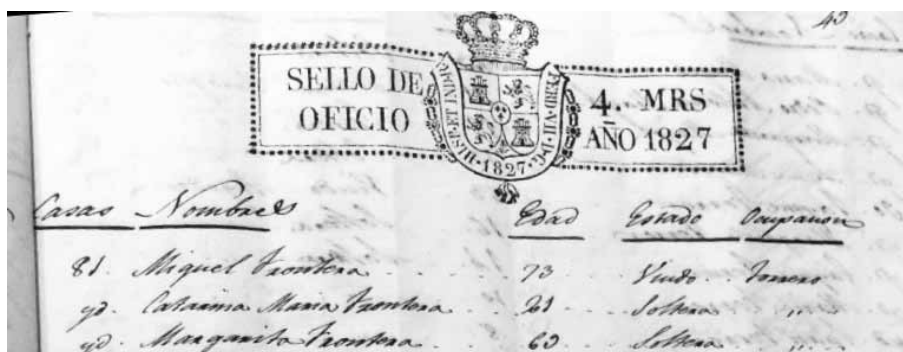 43
SELLO DE OFICIO
HISP. ET IND. · 1827 · FERD. VII. D. G.
4. MRS
AÑO 1827
Casas Nombres Edad Estado Ocupacion
81. Miguel Frontera 73 Viudo. Tornero
yd. Catarina Maria Frontera 21 Soltera
yd. Margarita Frontera 63 Soltera